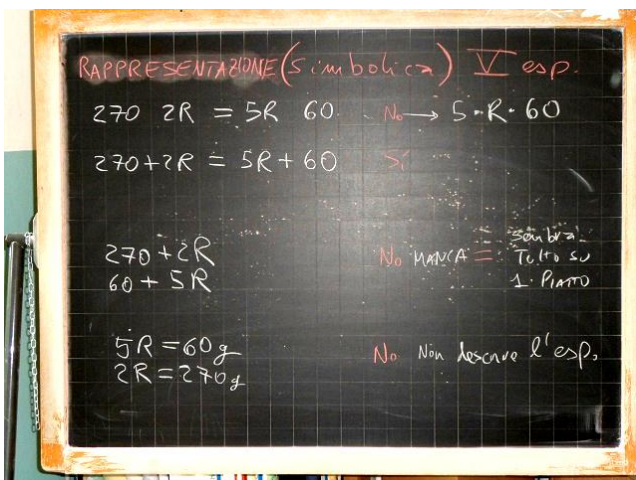 RAPPRESENTAZIONE (simbolica) V esp.
270 2R = 5R 60 No → 5·R·60
270+2R = 5R+60 Sì
270+2R No MANCA = sembra
60+5R Tutto su
1 PIATTO
5R=60g No Non descrive l'esp.
2R=270g